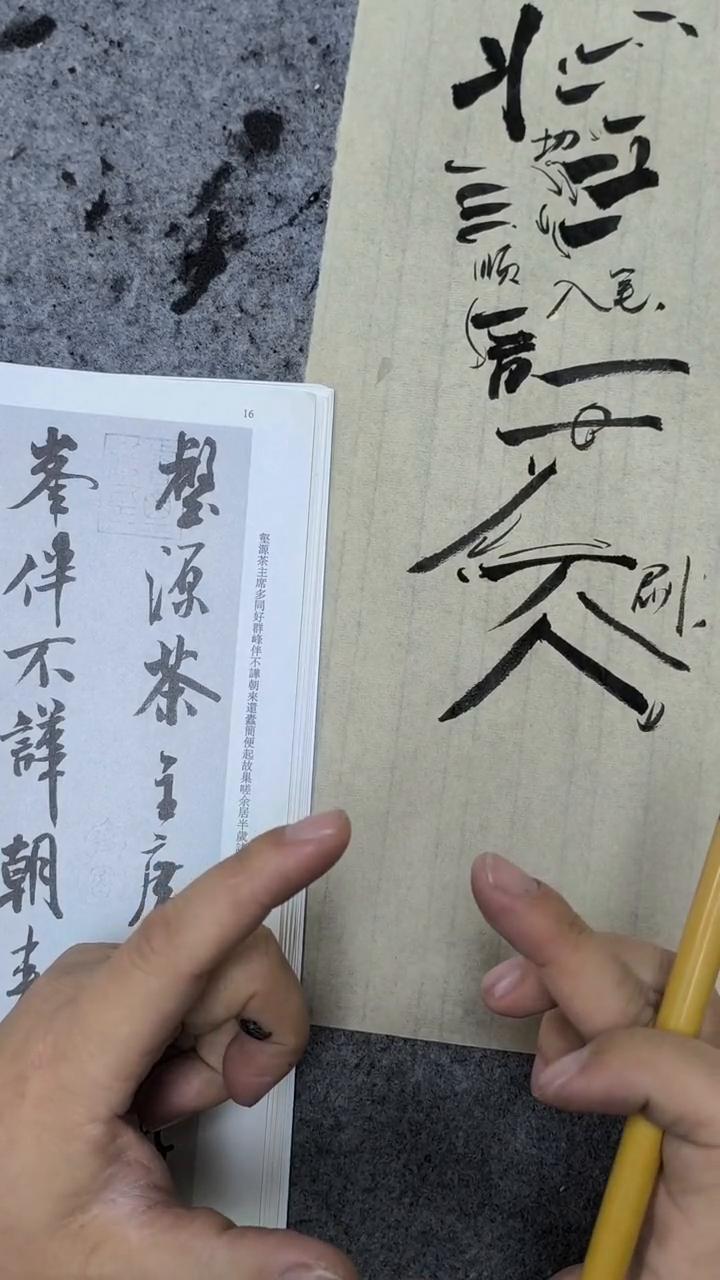 16
壑源茶主席多同好群峰伴不譁朝來還蠹簡便起故巢嗟余居半歲
壑源茶主席
峯伴不譁朝
切
三
順
入笔
刷